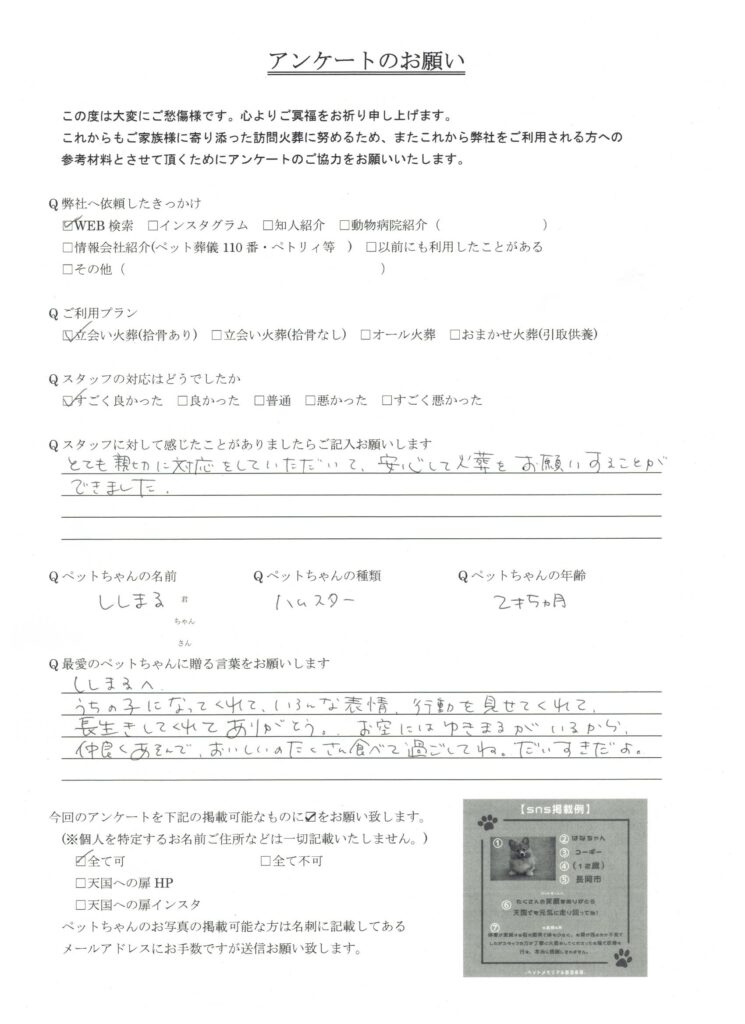 アンケートのお願い
この度は大変にご愁傷様です。心よりご冥福をお祈り申し上げます。
これからもご家族様に寄り添った訪問火葬に努めるため、またこれから弊社をご利用される方への
参考材料とさせて頂くためにアンケートのご協力をお願いいたします。
Q 弊社へ依頼したきっかけ
☑WEB 検索 □インスタグラム □知人紹介 □動物病院紹介（ ）
□情報会社紹介(ペット葬儀 110 番・ペトリィ等 ) □以前にも利用したことがある
□その他（ ）
Q ご利用プラン
☑立会い火葬(拾骨あり) □立会い火葬(拾骨なし) □オール火葬 □おまかせ火葬(引取供養)
Q スタッフの対応はどうでしたか
☑すごく良かった □良かった □普通 □悪かった □すごく悪かった
Q スタッフに対して感じたことがありましたらご記入お願いします
とても親切に対応をしていただいて、安心して火葬をお願いすることが
できました。
Q ペットちゃんの名前 Q ペットちゃんの種類 Q ペットちゃんの年齢
ししまる 君 ハムスター 2才5ヵ月
ちゃん
さん
Q 最愛のペットちゃんに贈る言葉をお願いします
ししまるへ
うちの子になってくれて、いろんな表情、行動を見せてくれて、
長生きしてくれてありがとう。お空にはゆきまるがいるから、
仲良くあそんで、おいしいのたくさん食べて過ごしてね。だいすきだよ。
今回のアンケートを下記の掲載可能なものに☑をお願い致します。
(※個人を特定するお名前ご住所などは一切記載いたしません。)
☑全て可 □全て不可
□天国への扉 HP
□天国への扉インスタ
ペットちゃんのお写真の掲載可能な方は名刺に記載してある
メールアドレスにお手数ですが送信お願い致します。
【sns掲載例】
① ② はなちゃん
③ コーギー
④ (12歳)
⑤ 長岡市
⑥ たくさんの笑顔をありがとう
天国でも元気に走り回ってね!
⑦